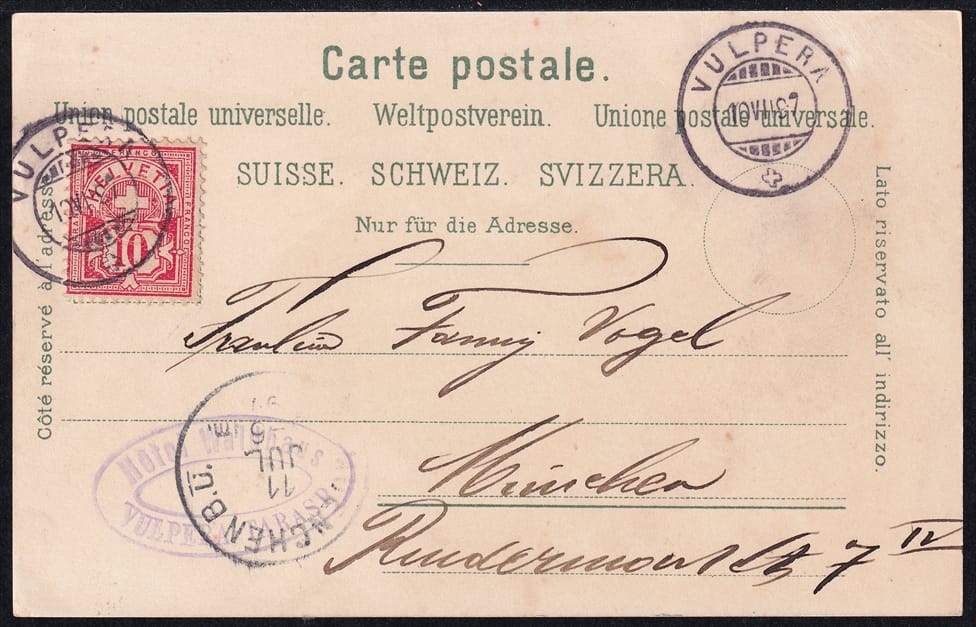 Carte postale.
Union postale universelle. Weltpostverein. Unione postale universale.
SUISSE. SCHWEIZ. SVIZZERA.
Nur für die Adresse.
Côté réservé à l'adresse
Lato riservato all' indirizzo.
VULPERA
10 VII 97
VULPERA
FRANCO
HELVETIA
FRANCO
10
Fräulein Fanny Vogel
München
7 IV
Hotel Waldhaus
VULPERA TARASP
NCHEN B.Ü.
11
JUL
6 m.
97